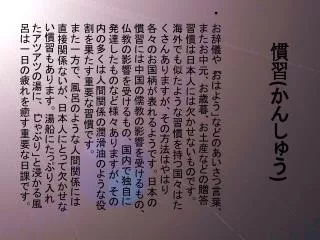 慣習(かんしゅう)
・お辞儀や「おはよう」などのあいさつ言葉、
またお中元、お歳暮、お土産などの贈答
習慣は日本人には欠かせないものです。
海外でも似たような習慣を持つ国々はた
くさんありますが、その方法はやはり
各々のお国柄が表れるようです。日本の
慣習には中国の儒教の影響を受けるもの、
仏教の影響を受けるもの、国内で独自に
発達したものなど様々ありますが、その
内の多くは人間関係の潤滑油のような役
割を果たす重要な習慣です。
また一方で、風呂のような人間関係には
直接関係ないが、日本人にとって欠かせな
い慣習もあります。湯船にたっぷり入れ
たアツアツの湯に、「じゃぶり」と浸かる風
呂は一日の疲れを癒す重要な日課です。